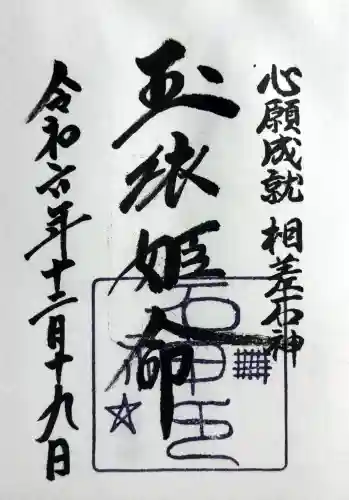 心願成就 相差石神
玉依姫命
令和六年十二月十九日
石神